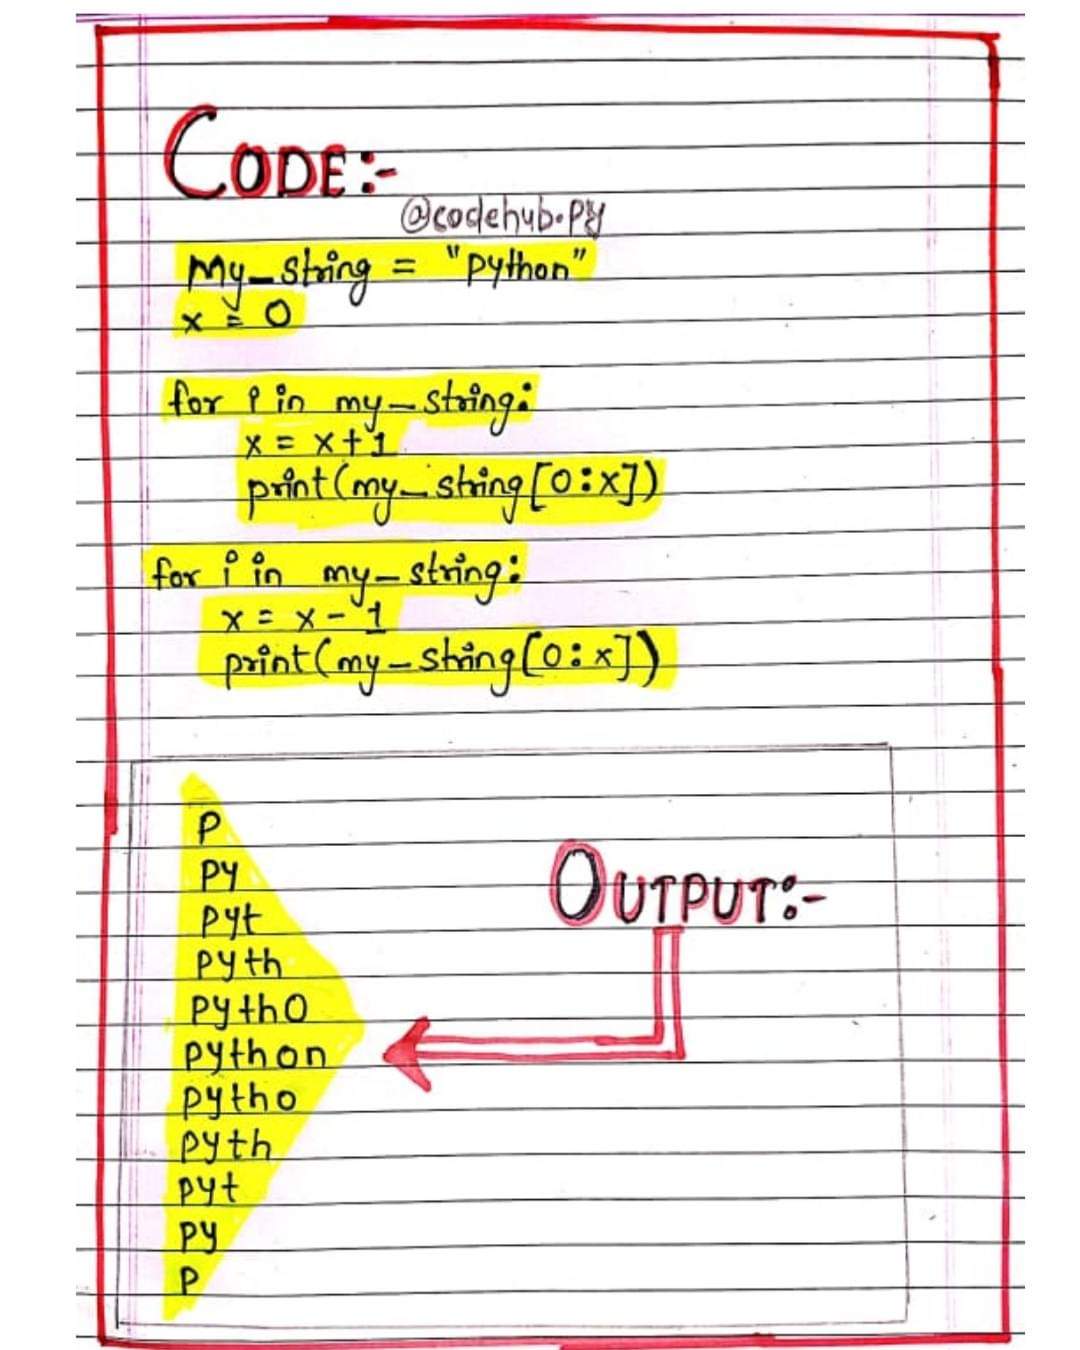 CODE:-
@codehub.py
My_string = "python"
x = 0
for i in my_string:
x = x+1
print(my_string[0:x])
for i in my_string:
x = x - 1
print(my_string[0:x])
P
PY
Pyt
Pyth
PythO
Python
Pytho
Pyth
Pyt
Py
P
OUTPUT:-